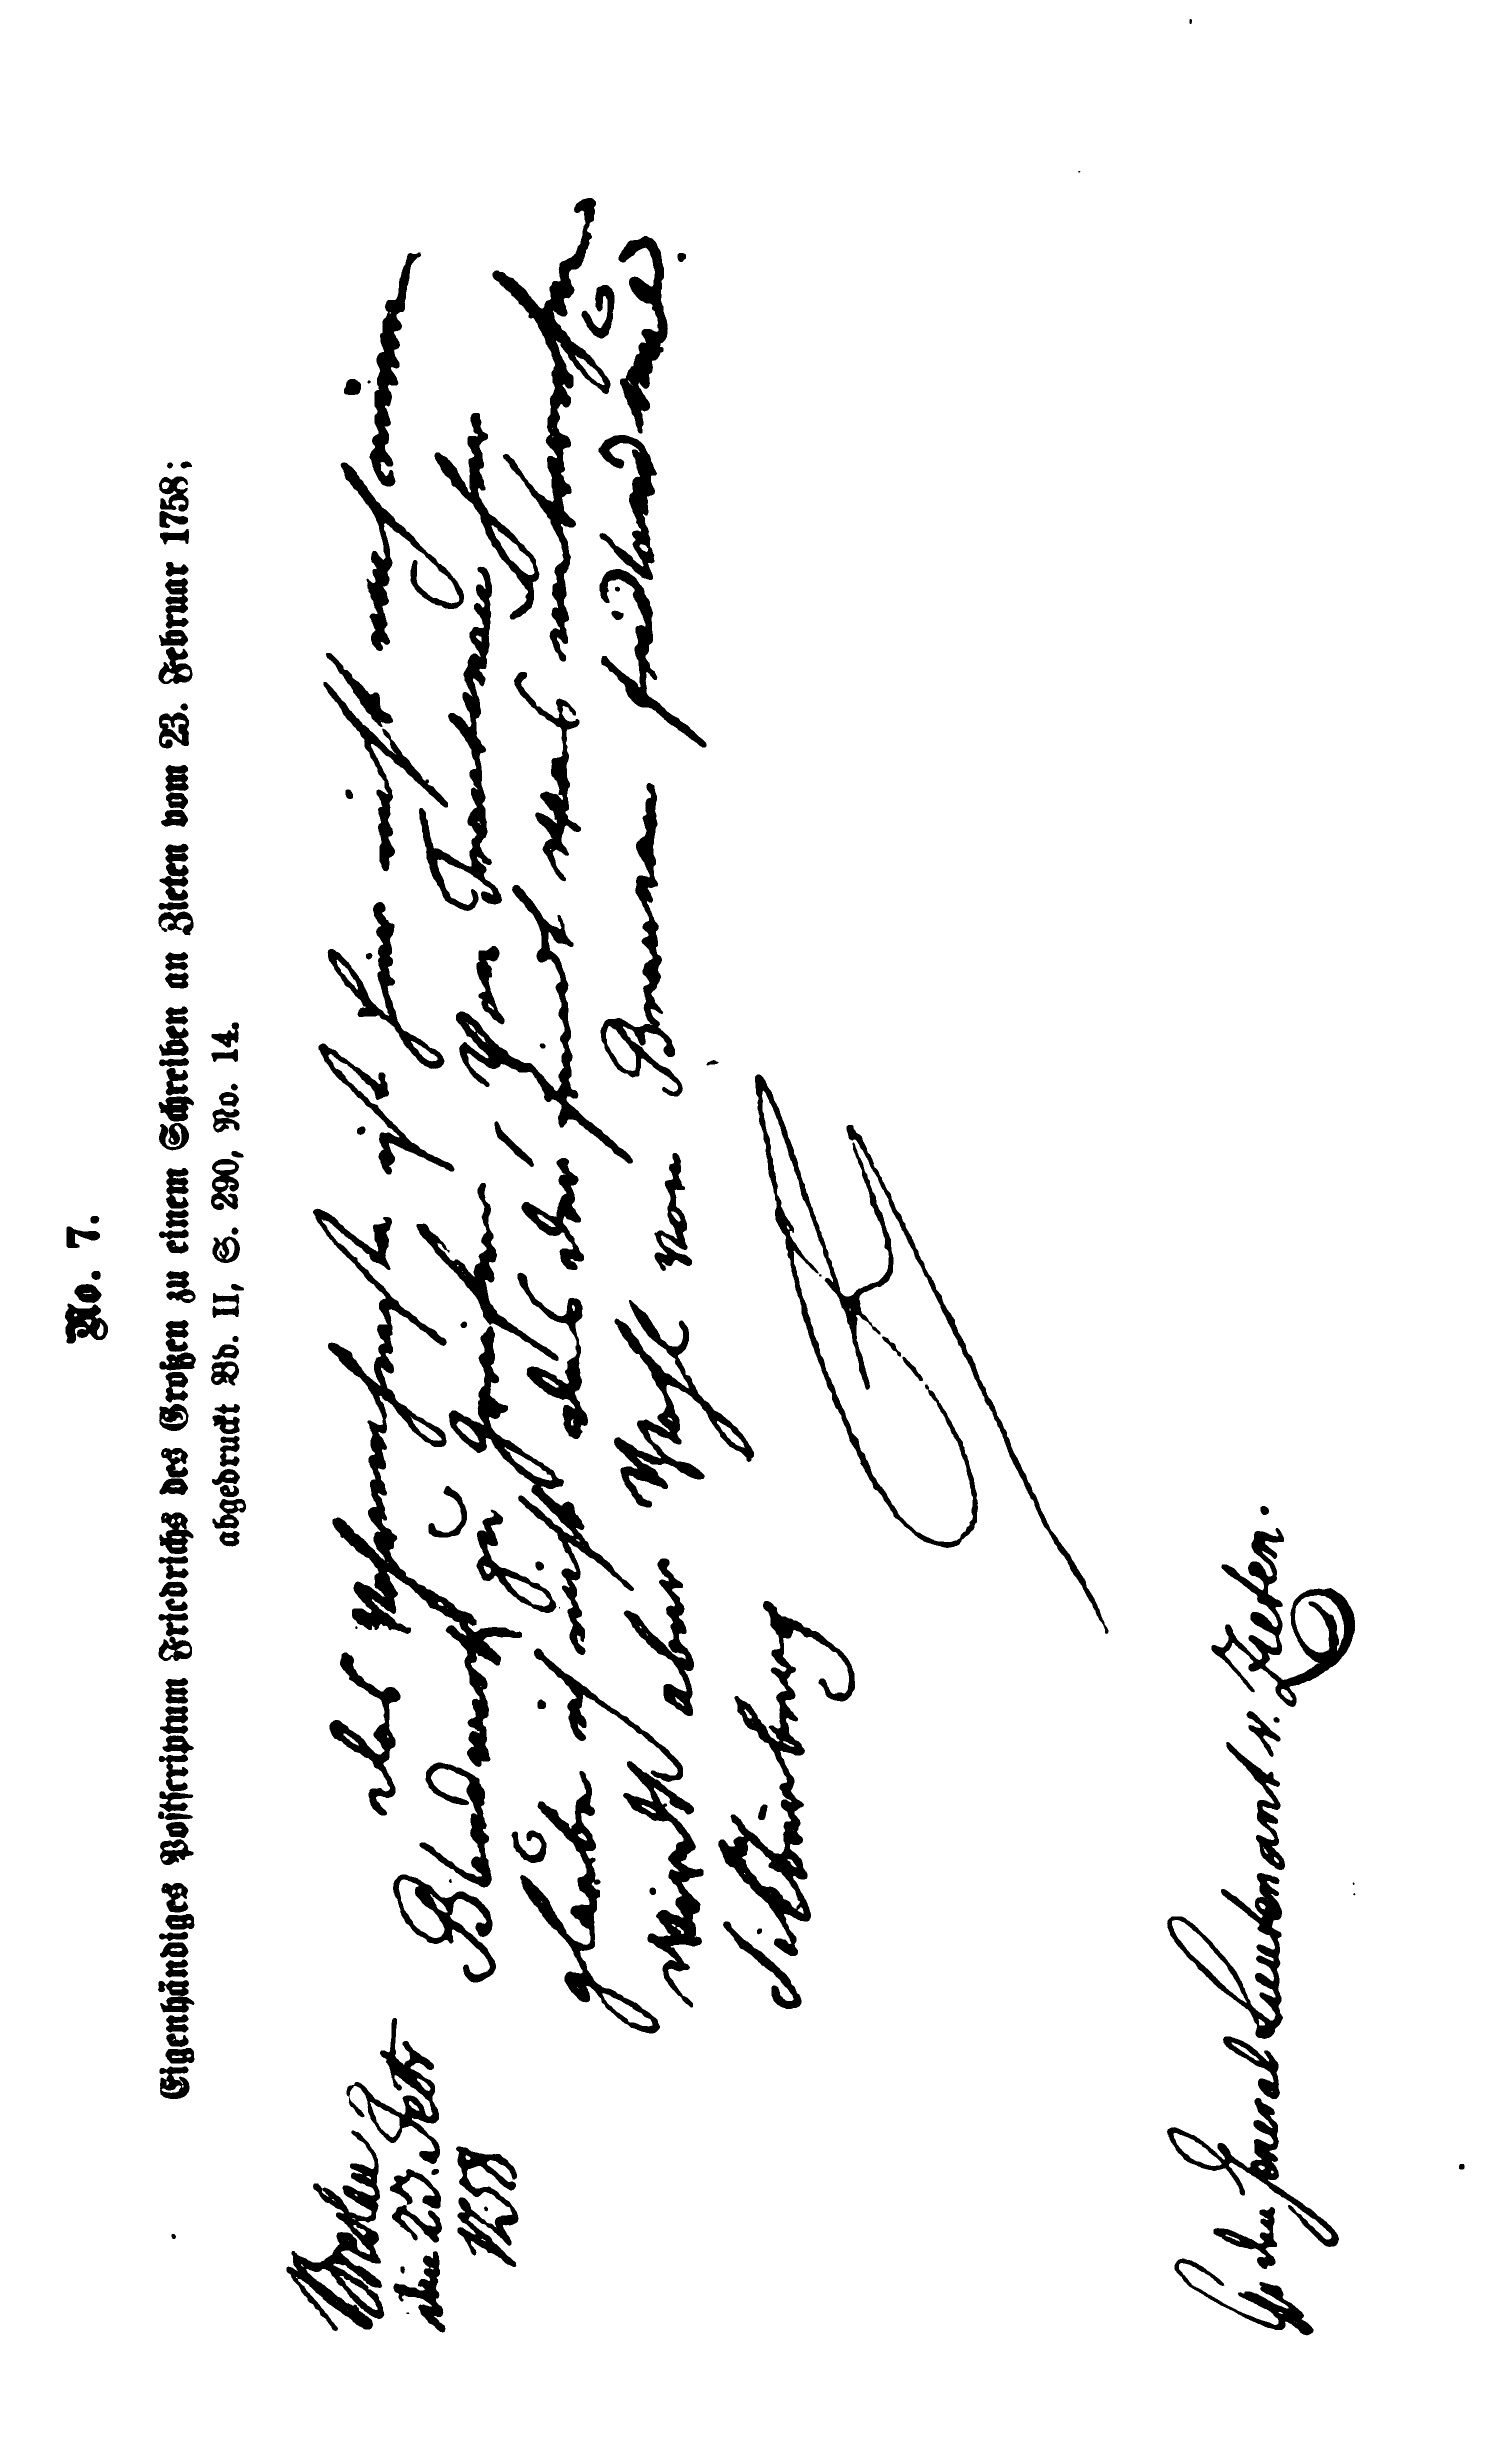 No. 7.
Eigenhändiges Postscriptum Friedrichs des Großen zu einem Schreiben an Zieten vom 23. Februar 1758;
abgedruckt Bd. II, S. 290, No. 14.
Breslau
den 23. Febr
1758
das Vohrnehmste ist hier nicht auf einen
Blendwerk zu gehen Von Trautenau her
glaube ich nicht das der feindt was unternehmen
wirdt aber Wohl von Braunau fridland und
Silberberg
An den General Lieutenant v. Zieten.